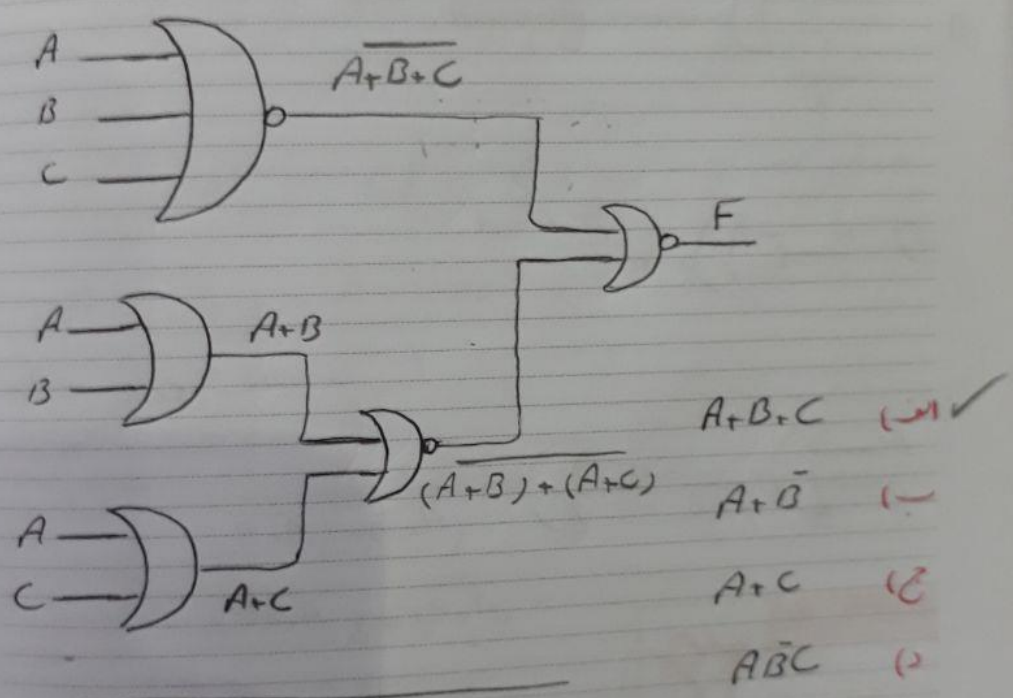 A
B
C
A+B+C̅
F
A
B
A+B
(A+B)+(A+C)
A
C
A+C
A+B+C الف) ✓
A+B̄ ب)
A+C ج)
AB̄C د)